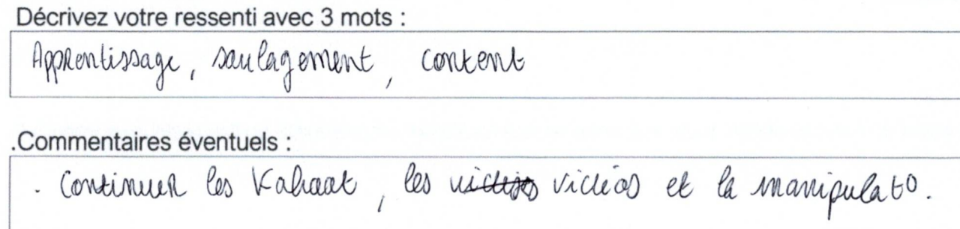 Décrivez votre ressenti avec 3 mots :
Apprentissage, soulagement, content
.Commentaires éventuels :
. Continuer les Kahoot, les vidéos et la manipulat°.